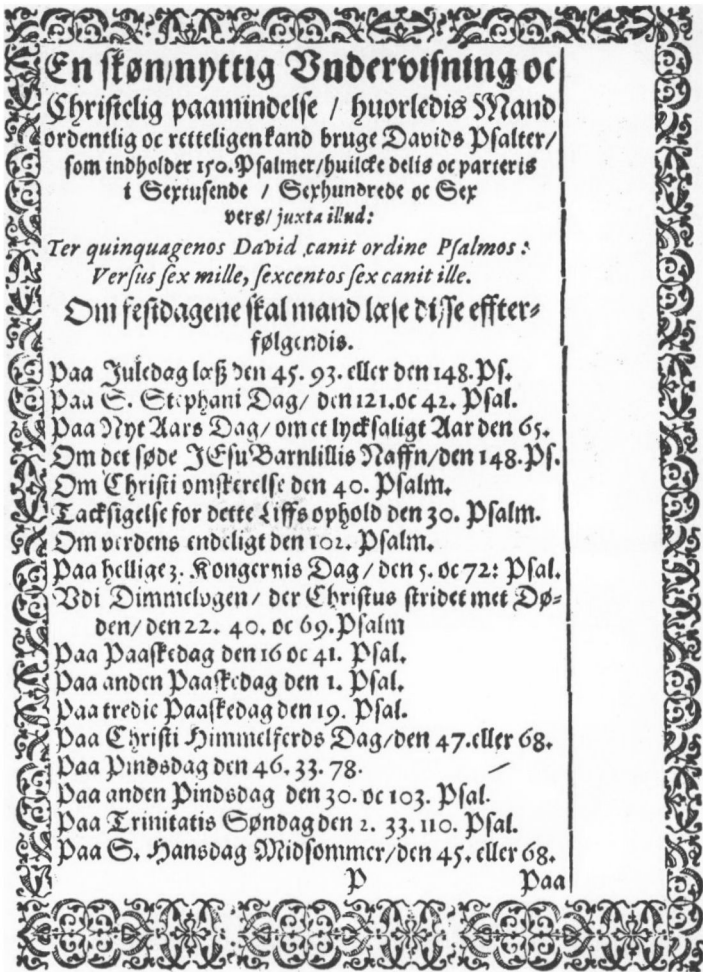 En skøn/nyttig Vndervisning oc
Christelig paamindelse / huorledis Mand
ordentlig oc retteligen kand bruge Davids Psalter/
som indholder 150. Psalmer/huilcke delis oc parteris
i Sextusende / Sexhundrede oc Sex
vers/ juxta illud:
Ter quinquagenos David canit ordine Psalmos:
Versus sex mille, sexcentos sex canit ille.
Om festdagene skal mand læse disse effter-
følgendis.
Paa Juledag læß den 45. 93. eller den 148. Ps.
Paa S. Stephani Dag/ den 121. oc 42. Psal.
Paa Nyt Aars Dag/ om et lycksaligt Aar den 65.
Om det søde JEsu Barnlillis Naffn/den 148. Ps.
Om Christi omskerelse den 40. Psalm.
Tacksigelse for dette Liffs ophold den 30. Psalm.
Om verdens endeligt den 102. Psalm.
Paa hellige 3. Kongernis Dag / den 5. oc 72: Psal.
Vdi Dimmelvgen / der Christus stridet met Dø-
den/ den 22. 40. oc 69. Psalm
Paa Paaskedag den 16 oc 41. Psal.
Paa anden Paaskedag den 1. Psal.
Paa tredie Paaskedag den 19. Psal.
Paa Christi Himmelferds Dag/den 47. eller 68.
Paa Pindsdag den 46. 33. 78.
Paa anden Pindsdag den 30. oc 103. Psal.
Paa Trinitatis Søndag den 2. 33. 110. Psal.
Paa S. Hansdag Midsommer/den 45. eller 68.
P Paa